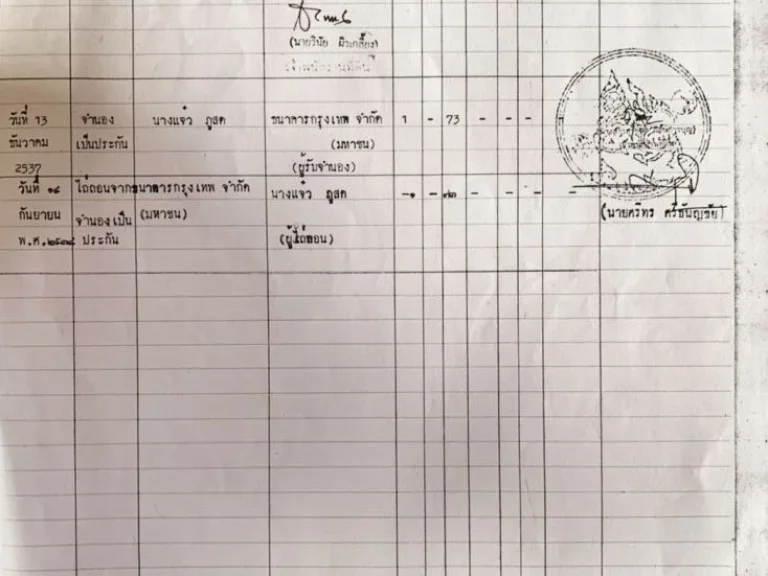 (นายวินัย
วันที่ 13 จำนอง นางแจ๋ว ภูสด ธนาคารกรุงเทพ จำกัด 1 - 73 - - - -
ธันวาคม เป็นประกัน (มหาชน)
2537 (ผู้รับจำนอง)
วันที่ ๑๔ ไถ่ถอนจาก ธนาคารกรุงเทพ จำกัด นางแจ๋ว ภูสด -๑ - ๗๓ - - - -
กันยายน จำนองเป็น (มหาชน) (นายศรีทร
พ.ศ.๒๕๓๘ ประกัน (ผู้ไถ่ถอน)